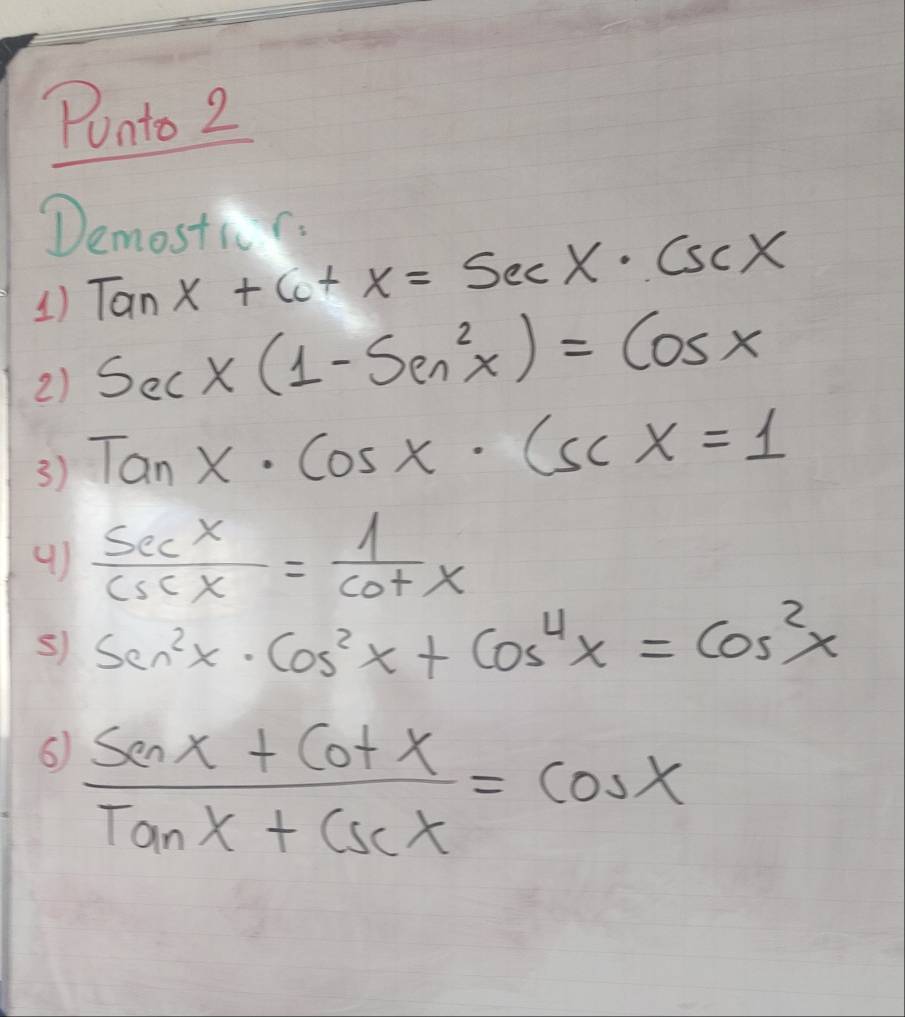 Punto 2
Demostrar:
1) Tan x + Cot x = Sec x · Csc x
2) Sec x (1 - Sen²x) = Cos x
3) Tan x · Cos x · Csc x = 1
4) Sec x / Csc x = 1 / Cot x
5) Sen²x · Cos²x + Cos⁴x = Cos²x
6) Sen x + Cot x / Tan x + Csc x = Cos x